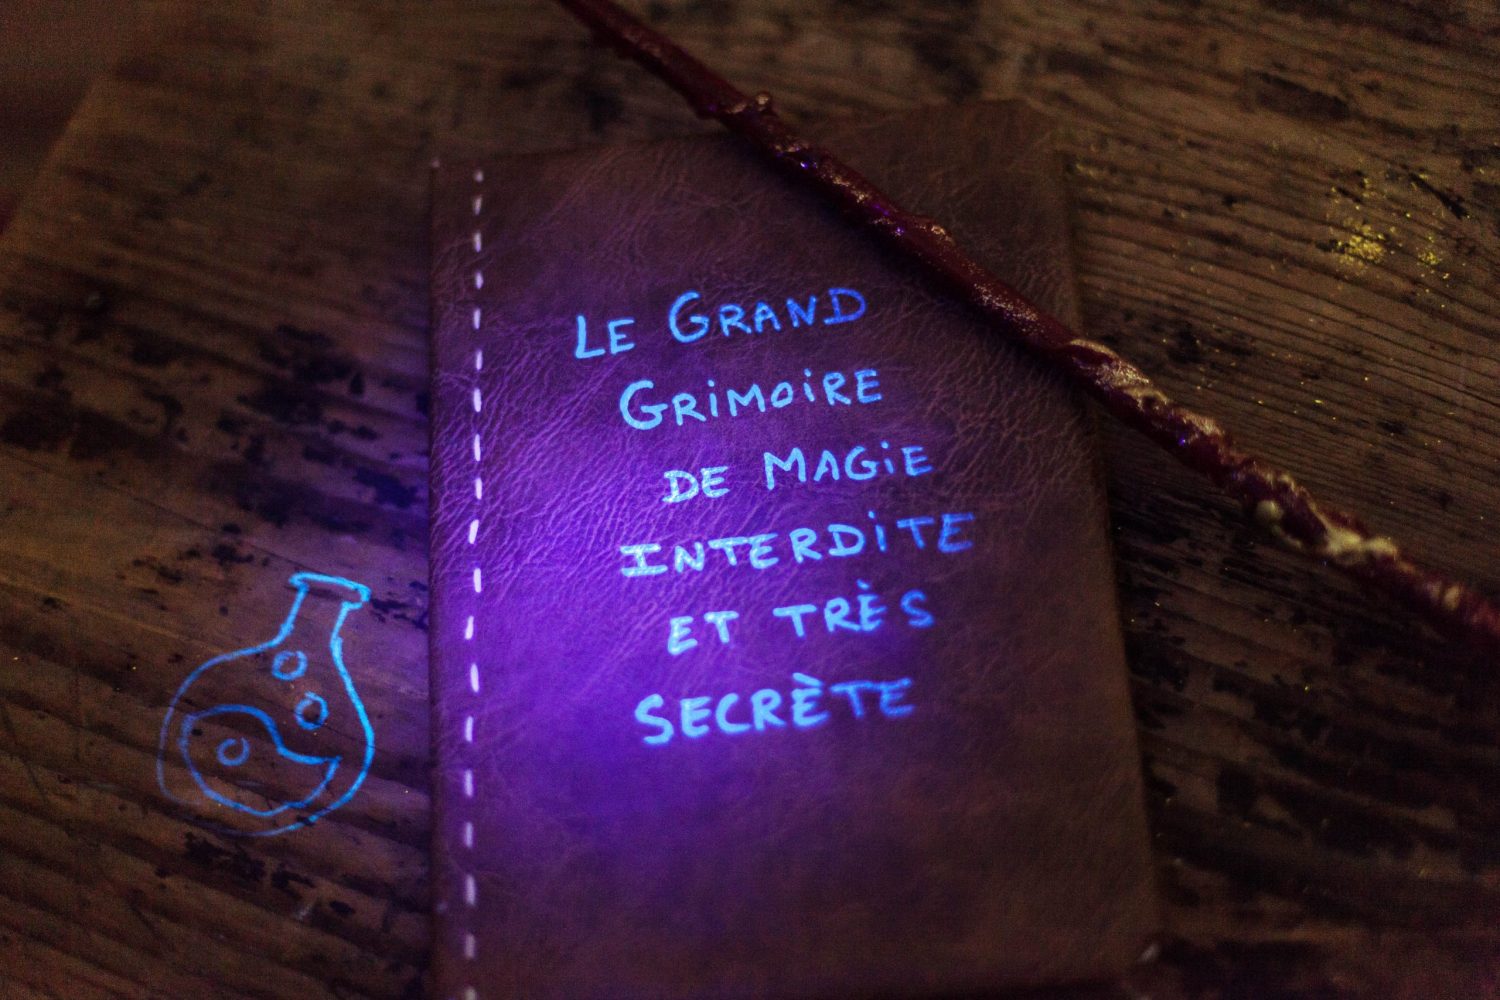 LE GRAND
GRiMOiRE
DE MAGiE
INTERDiTE
ET TRÈS
SECRÈTE